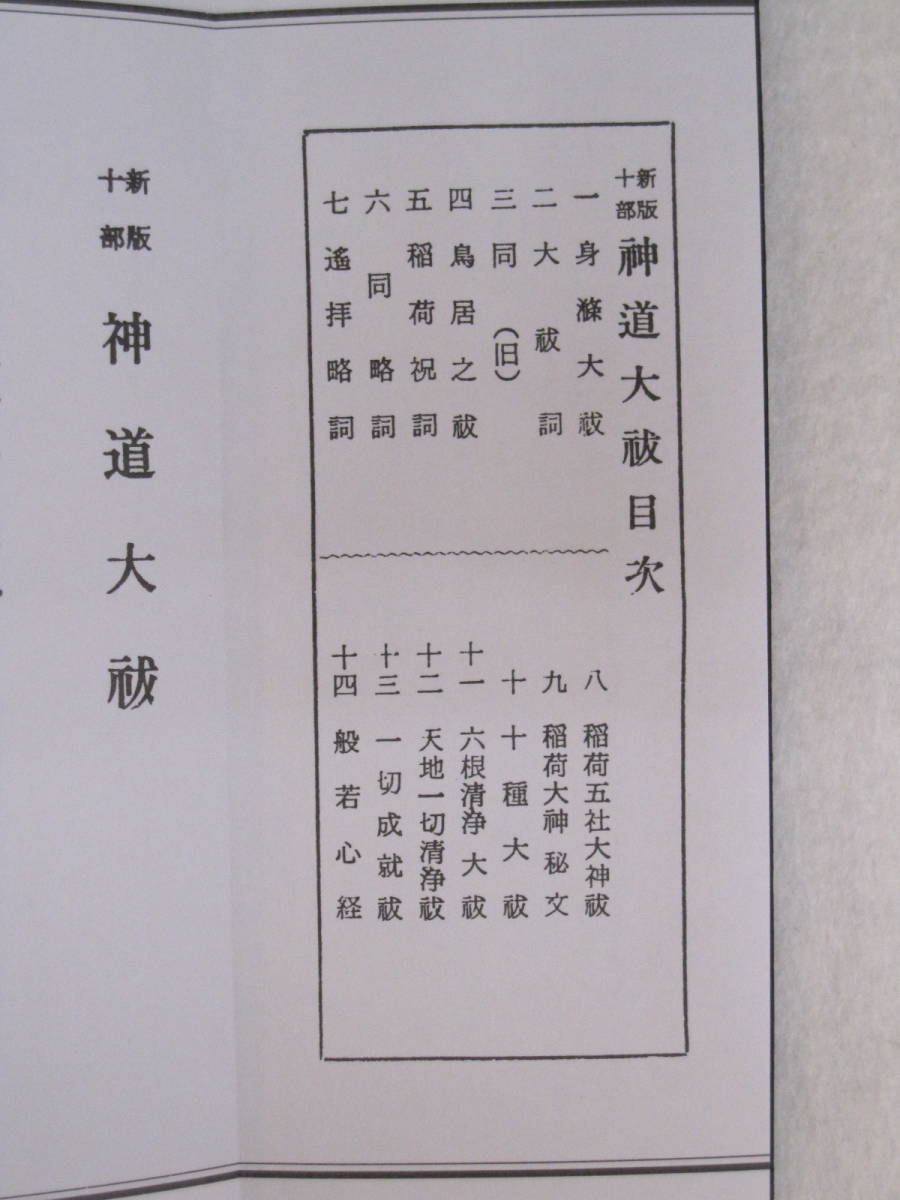 新版十部 神道大祓目次
一 身滌大祓
二 大祓詞
三 同（旧）
四 鳥居之祓
五 稲荷祝詞
六 同略詞
七 遙拝略詞
八 稲荷五社大神祓
九 稲荷大神秘文
十 十種大祓
十一 六根清浄大祓
十二 天地一切清浄祓
十三 一切成就祓
十四 般若心経
新版十部 神道大祓